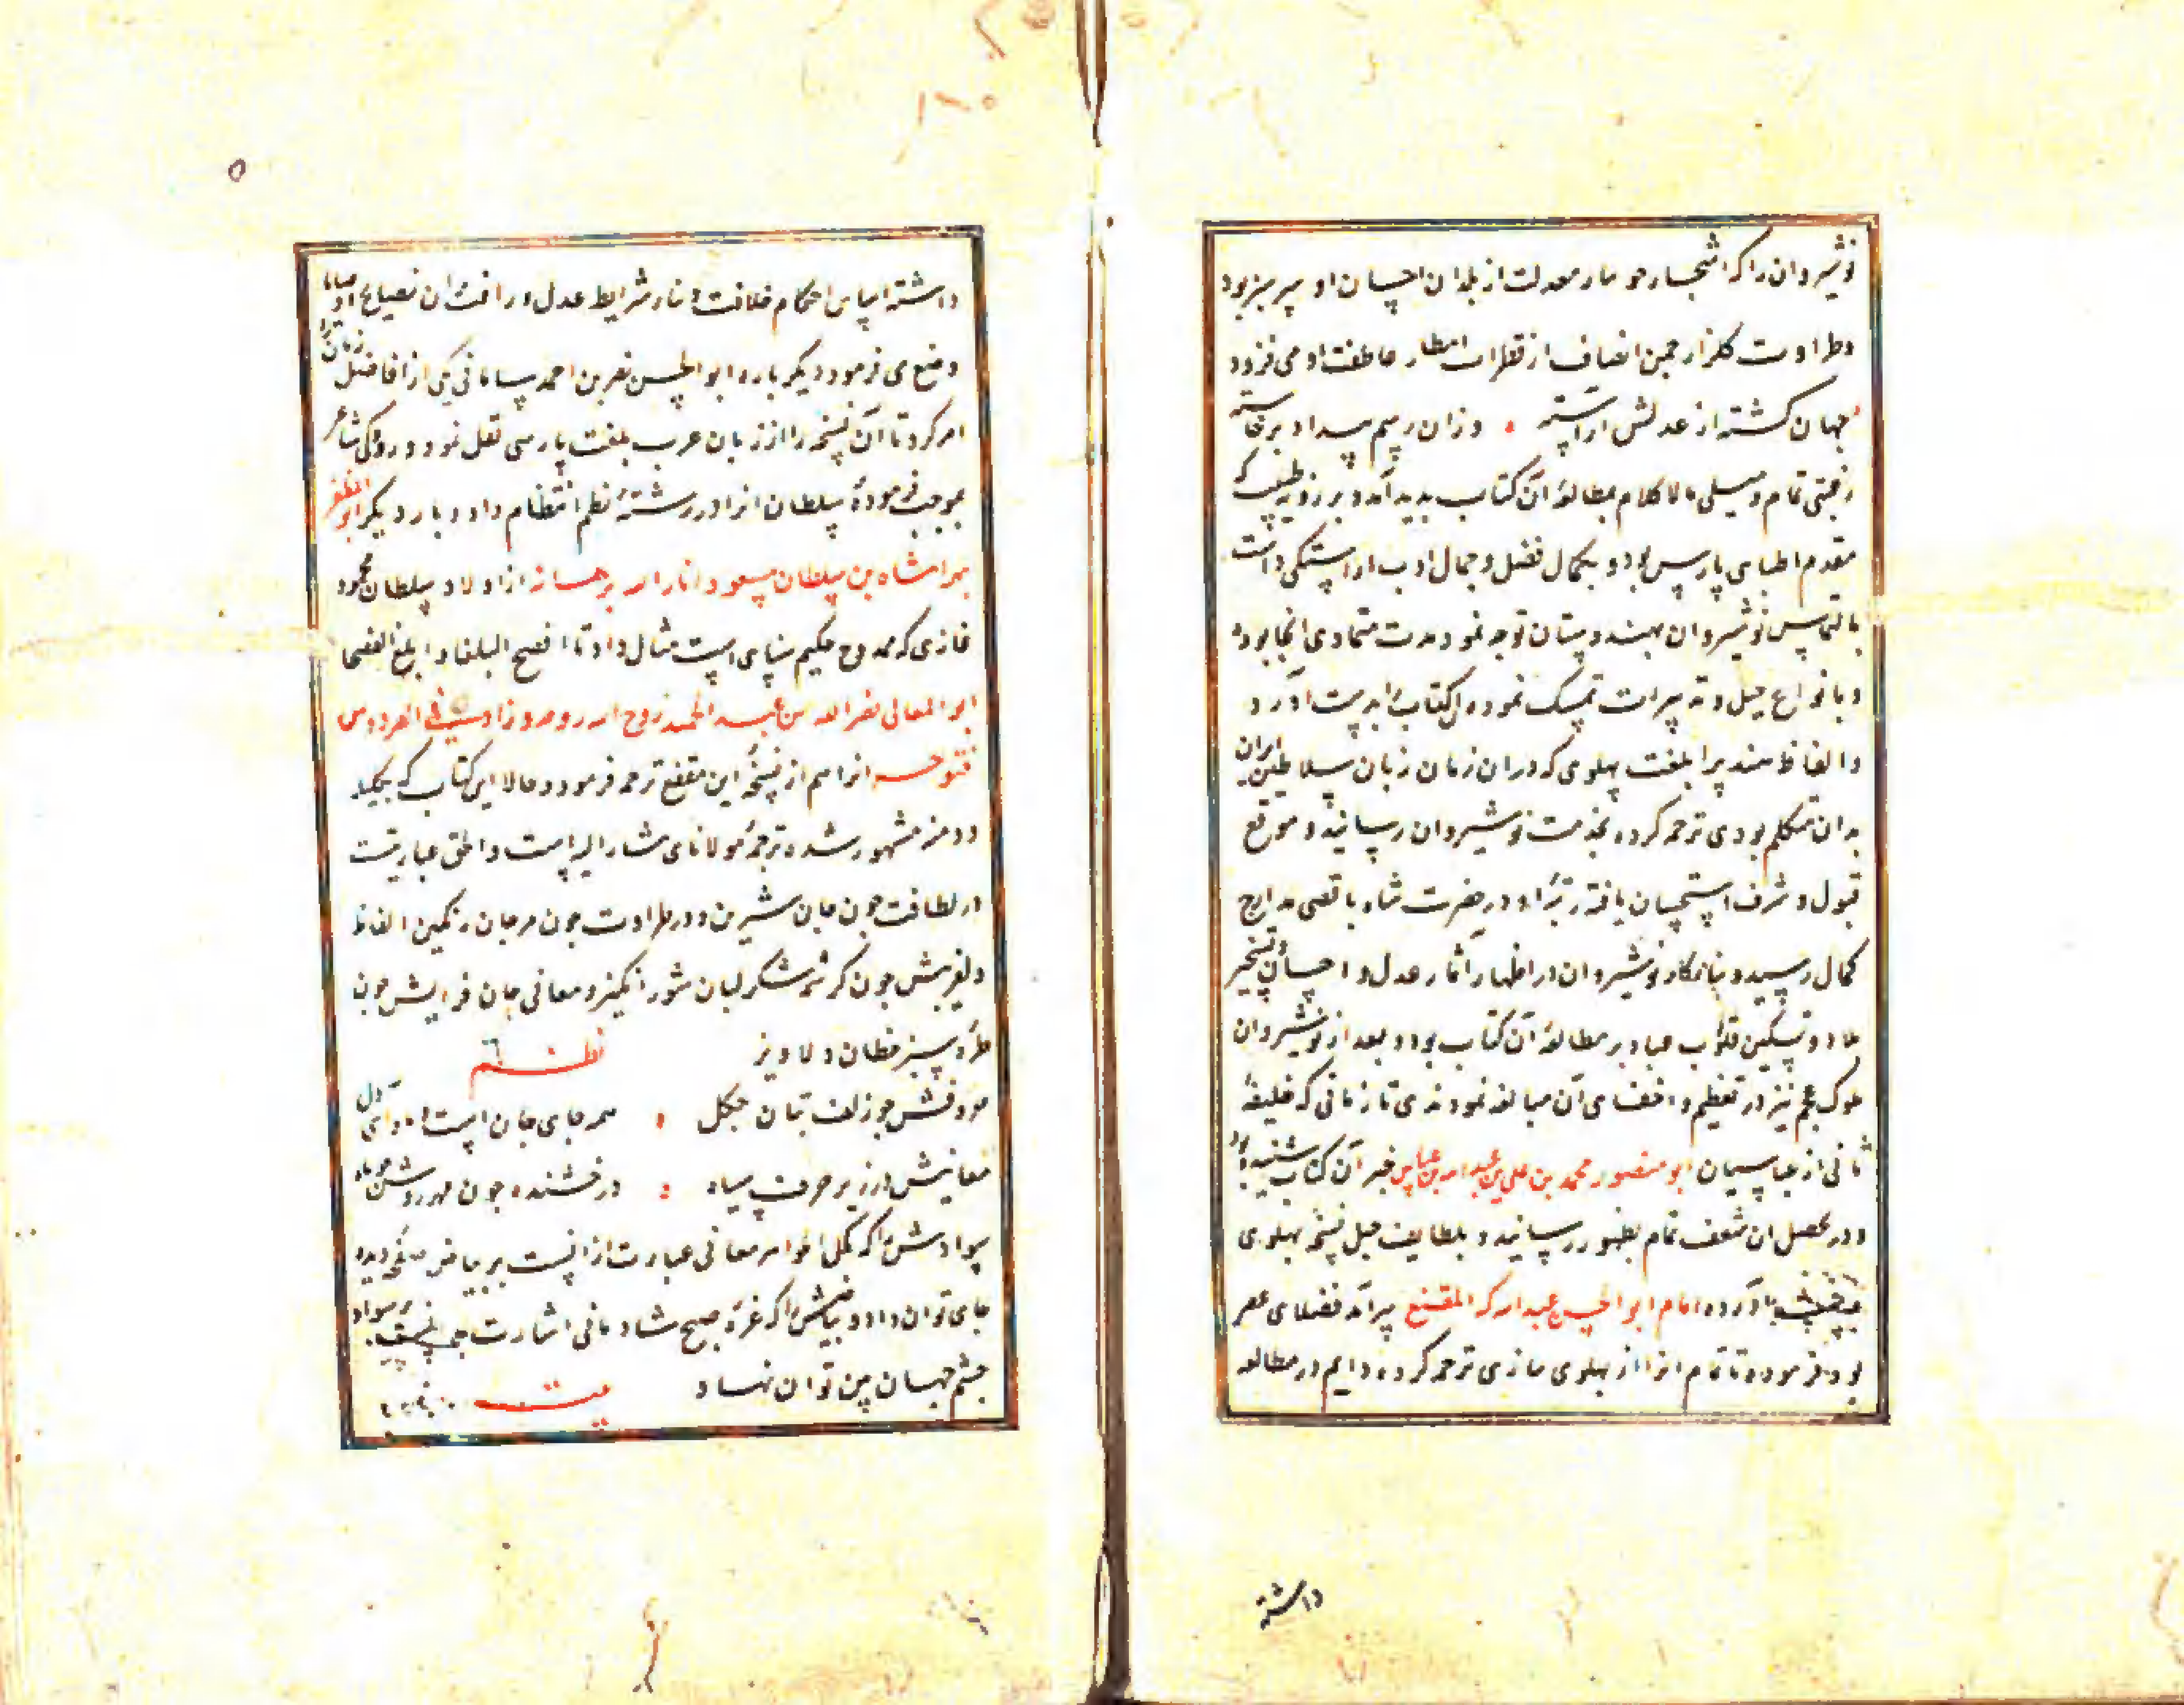 نوشیروان را که اشجار جویبار معدلت از بلدان احسان او سرسبز بود
و طراوت کلزار جمن انصاف از قطرات امطار عاطفت او می فزود
جهان کشته از عدلش اراسته وزان رسم بیداد برخاسته
رغبتی تمام و میلی مالا کلام بمطالعهٔ آن کتاب بدید آمد و برزویه طبیب که
مقدم اطبای پارس بود و بکمال فضل و جمال ادب اراستکی داشت
بالتماس نوشیروان بهندوستان توجه نمود مدت متمادی انجا بوده
و بانواع حیل و تدبیرات تمسک نموده ان کتاب را بدست آورد
و الفاظ هندیرا بلغت پهلوی که دران زمان زبان سلاطین ایران
بدان متکلم بودی ترجمه کرده بخدمت نوشیروان رسانید و موقع
قبول و شرف استحسان یافته رتبهٔ او در حضرت شاه باقصی مدارج
کمال رسید و بنا کار نوشیروان در اظهار آثار عدل و احسان و تسخیر
بلاد و تسکین قلوب عباد بر مطالعهٔ آن کتاب بود و بعد از نوشیروان
ملوک عجم نیز در تعظیم و اخفای آن مبالغه نمودندی تا زمانی که خلیفهٔ
ثانی از عباسیان ابو منصور محمد بن علی بن عبد الله بن عباس خبر آن کتاب شنیده بود
و در تحصیل ان شعف تمام بظهور رسانید و بلطایف حیل نسخهٔ پهلوی
بدست آورده امام ابو الحسن عبد الله که المقنع سرآمد فضلای عصر
بود فرموده تا تمام انرا از پهلوی بتازی ترجمه کرده دایم در مطالعه
داشته
٥
داشته اساس احکام خلافت و بناء شرایط عدل و رافت ان نصایح او وصایا
وضع می فرمود دیکر باره ابو الحسن نصر بن احمد سامانی یکی از افاضل زمان
امر کرد تا آن نسخه را از زبان عرب بلغت پارسی نقل نمود و رودکی شاعر
بموجب فرمودهٔ سلطان انرا در رشتهٔ نظم انتظام داد و بار دیکر ابو المظفر
بهرامشاه بن سلطان مسعود انار الله برهانه از اولاد سلطان محمود
غازی که ممدوح حکیم سنایی است مثال داد تا افصح البلغا و ابلغ الفصحا
ابو المعالی نصر الله بن عبد الحمید روح الله روحه و زاد فی الفردوس
فتوحه انرا هم از نسخهٔ ابن مقفع ترجمه فرمود و حالا این کتاب که بکلیله
و دمنه مشهور شده ترجمهٔ مولانای مشار الیه است و الحق عباریست
در لطافت جون جان شیرین و در طراوت جون مرجان رنکین الفاظ
دلفریبش جون کرشمهٔ شکر لبان شور انکیز و معانی جان فزایش جون
طرهٔ سبز خطان دلاویز نظم
حروفش جو زلف بتان جکل همه جای جان است و ماوای دل
معانیش در زیر حرف سیاه درخشنده جون مهر و روشن جو ماه
سوادش را که کحل الجواهر معانی عبارت از انست بر بیاض دیده
جای توان داد و بیاضش را که غرهٔ صبح شادمانی اشارت بر سواد
جشم جهان بین توان نهاد بیت